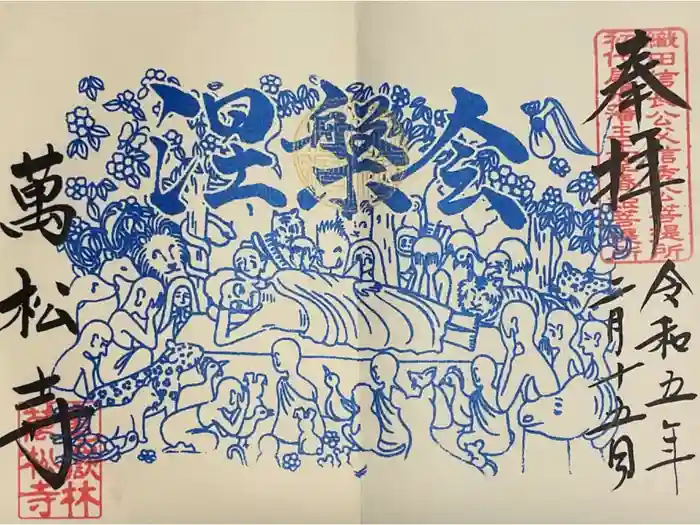 奉拝
織田信長公父信秀公菩提所
令和五年
二月十五日
涅槃会
萬松寺
萬松寺